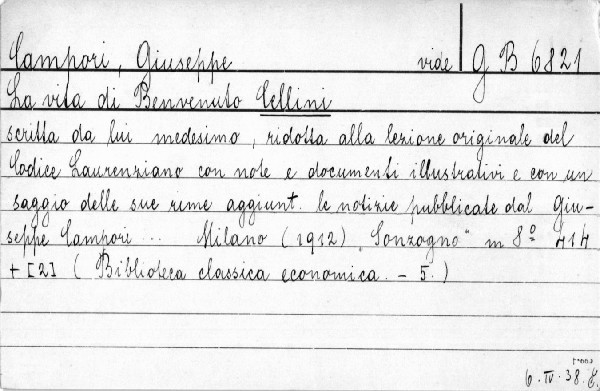 Campori, Giuseppe vide G B 6821
La vita di Benvenuto Cellini
scritta da lui medesimo, ridotta alla lezione originale del
Codice Laurenziano con note e documenti illustrativi e con un
saggio delle sue rime aggiunt. le notizie pubblicate dal Giu-
seppe Campori ... Milano (1912) "Sonzogno" in 8º 414
+ [2] (Biblioteca classica economica. - 5.)
6. IV. 38.